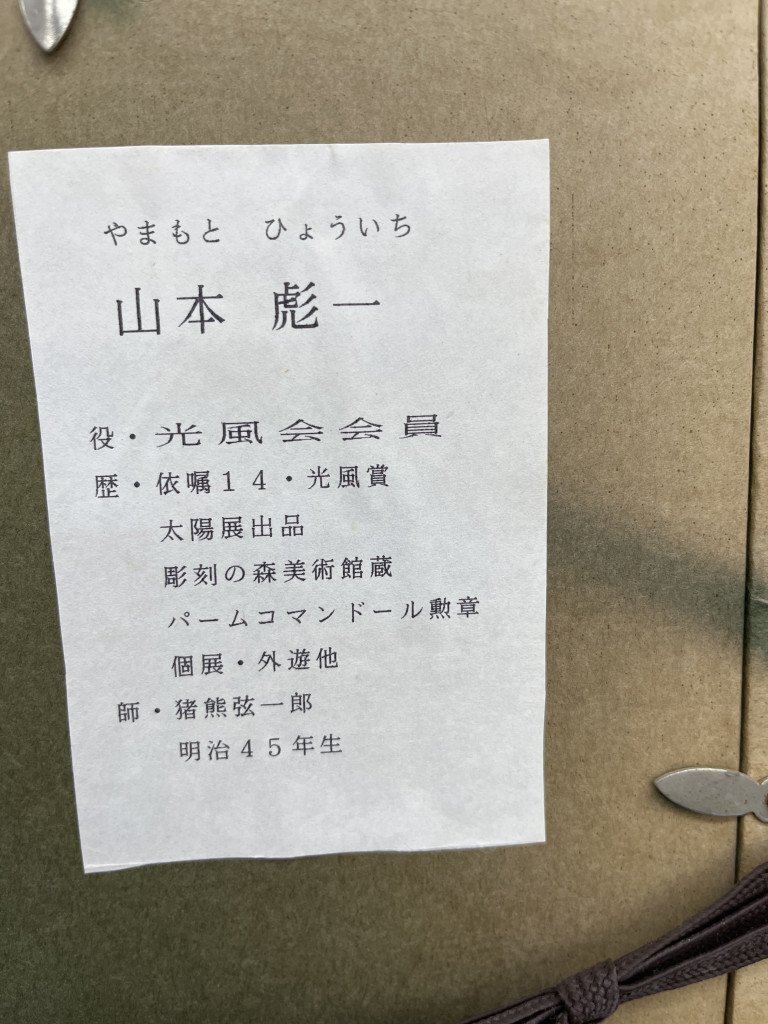 やまもと　ひょういち
山本 彪一
役・光風会会員
歴・依嘱１４・光風賞
太陽展出品
彫刻の森美術館蔵
パームコマンドール勲章
個展・外遊他
師・猪熊弦一郎
明治４５年生